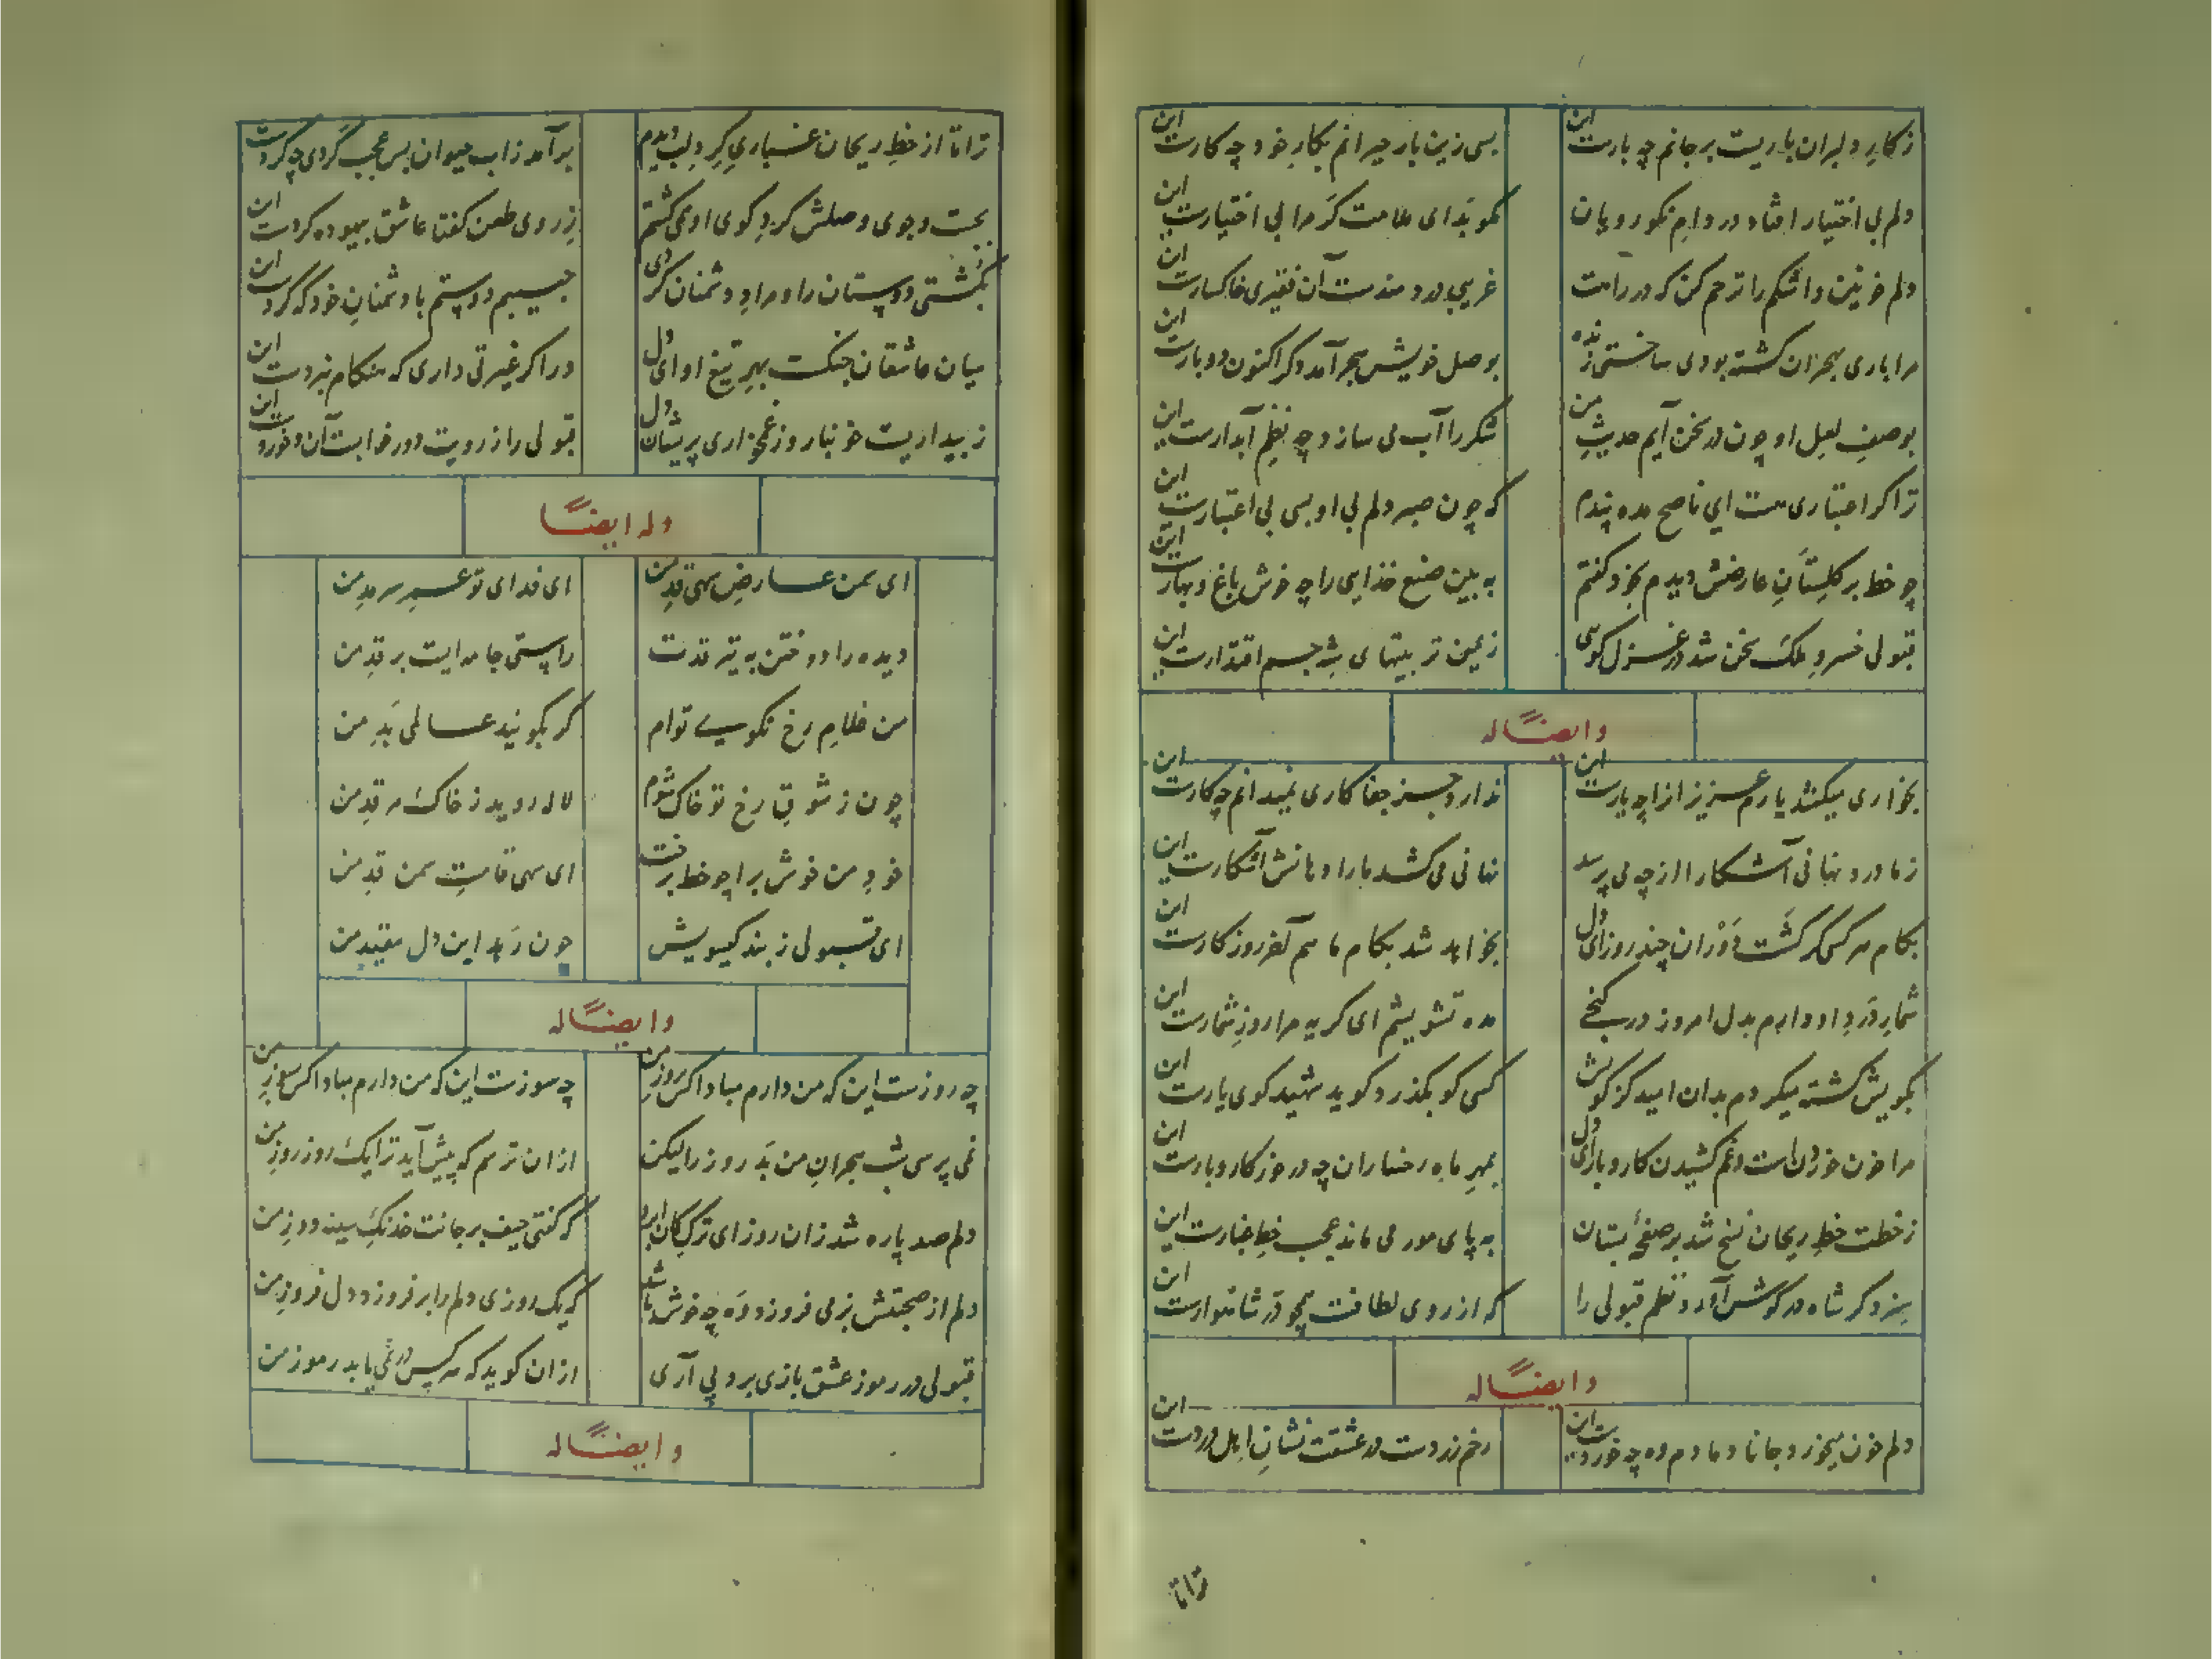 ز کارِ دلبران باریست بر جانم چه بارست این
بسی زین بار حیرانم بکارِ خود چه کارست این
دلم بی اختیار افتاد در دامِ نکورویان
مگوید ای ملامت گر مرا بی اختیارست این
دلم خونین و اشکم را ترحم کن که در راهت
غریبی دردمندست آن فقیری خاکسارست این
مرا باری بهجران کشته بودی ساختی زنده
بوصل خویش هجر آمد دگر اکنون دوبارست این
بوصفِ لعلِ او چون در سخن آیم حدیثِ من
شکر را آب می سازد چه نظمِ آبدارست این
ترا گر اعتباری هست ای ناصح مده پندم
که چون صبر دلم بی او بسی بی اعتبارست این
چو خط بر گلستانِ عارضش دیدم بخود گفتم
به بین صنع خدایی را چه خوش باغ و بهارست این
قبولی خسروِ ملک سخن شد در غزل گویی
ز یمن تربیتهای شه جم اقتدارست این
وایضاً له
بخواری میکشد یارم عزیزان را چه یارست این
ندارد جز جفا کاری نمیدانم چه کارست این
ز ما دردِ نهانی آشکارا از چه می پرسد
نهانی می کشد ما را دهانش آشکارست این
بکام هر کسی گر گشت دَوْران چند روز ای دل
بخواهد شد بکام ما هم آخر روزگارست این
شمارِ دَردِ او دارم بدل امروز در کنجی
مده تشویشم ای گریه مرا روزِ شمارست این
بکویش کشته میگردم بدان امید کز کویش
کسی کو بگذرد گوید شهید کوی یارست این
مرا خون خوردن است و غم کشیدن کار و بار ای دل
بمهرِ ماه رخساران چه در خور کار و بارست این
ز خطت خطِ ریحان نسخ شد بر صفحهٔ بستان
به پای مور می ماند عجب خطِ غبارست این
سزد گر شاه در گوش آورد نظم قبولی را
که از روی لطافت همچو دُر شاهوارست این
وایضاً له
دلم خون میخورد جانا دمادم وه چه خوردست این
رخم زردست در عشقت نشانِ اهل دردست این
ترا تا
ترا تا از خطِ ریحان غباری گِردِ لب دیدم
برآمد ز آب حیوان بس عجب گردی چه گردست این
بجست و جوی وصلش گردِ کوی او می گشتم
ز روی طعن گفتا عاشق بیهوده گردست این
بکشتی دوستان را و مرادِ دشمنان کردی
حبیبم دوستم با دشمنانِ خود که کردست این
میان عاشقان جنگست بهرِ تیغ او ای دل
درآ گر غیرتی داری که هنگام نبردست این
ز بیداریت خونبار و ز غمخواری پریشان دل
قبولی را ز رویت دور خوابست آن و خوردست این
وله ایضاً
ای سمن عارضِ سهی قدِ من
ای فدای تو عمرِ سرمدِ من
دیده را دوختن به تیر قدت
راستی جامه ایست بر قدِ من
من غلامِ رخِ نکویِ توام
گر بگویند عالمی بَدِ من
چون ز شوقِ رخِ تو خاک شوم
لاله روید ز خاکِ مرقدِ من
خود من خوش برا چو خط برخت
ای سهی قامتِ سمن قدِ من
ای قبولی ز بند گیسویش
چون رَهد این دل مقیدِ من
وایضاً له
چه روزست این که من دارم مبادا کس بروزِ من
چه سوزست این که من دارم مبادا کس بسوزِ من
نمی پرسی شبِ هجرانِ من بَد روز را لیکن
از آن ترسم که پیش آید ترا یک روز روزِ من
دلم صد پاره شد زان روز ای ترکِ کمان ابرو
که گفتی حیف بر جانت خدنگِ سینه دوزِ من
دلم از صحبتش بزمی فروزد وَه چه خوش باشد
که یک روزی دلم را بر فروزد دل فروزِ من
قبولی در رموز عشق بازی برد پی آری
از آن گوید که هر کس در نمی یابد رموز من
وایضاً له